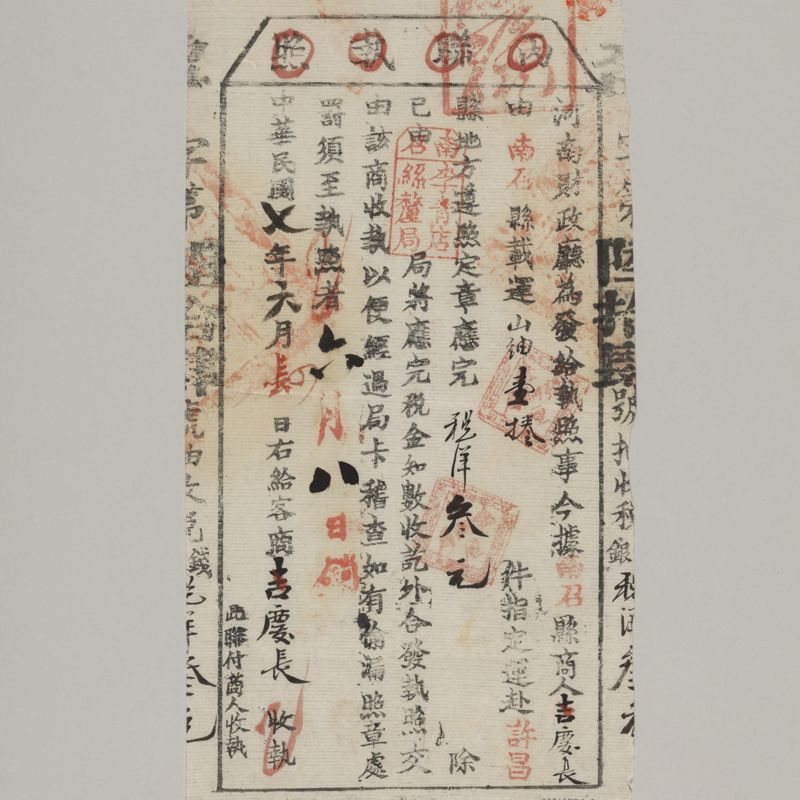 內聯執照
號抽收稅銀稅洋叁元
河南財政廳為發給執照事今據南召縣商人吉慶長
由南召縣載運山紬壹捲件指定運赴許昌
縣地方遵照定章應完稅洋叁元除
已由
南李青店
召絲釐局
局將應完稅金如數收訖外合發執照交
由該商收執以便經過局卡稽查如有偷漏照章處
罰須至執照者
六月八日
中華民國七年六月日右給客商吉慶長收執
此聯付商人收執
字第